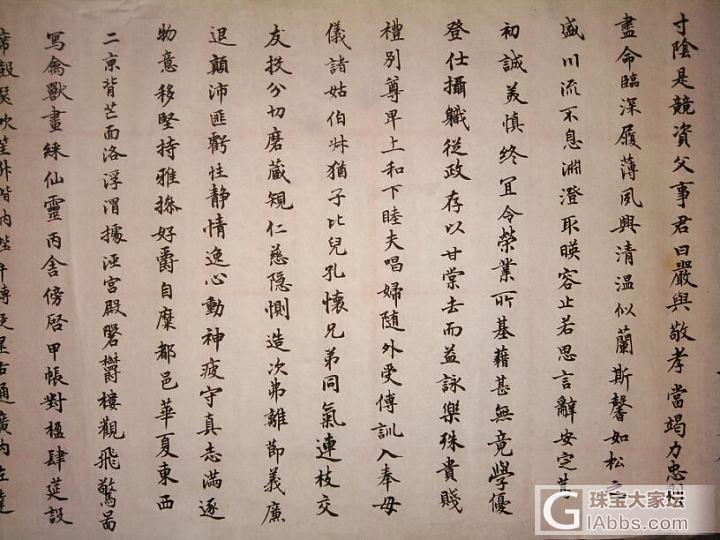 寸陰是競資父事君曰嚴與敬孝當竭力忠則
盡命臨深履薄夙興清溫似蘭斯馨如松之
盛川流不息淵澄取暎容止若思言辭安定篤
初誠美慎終宜令榮業所基藉甚無竟學優
登仕攝職從政存以甘棠去而益詠樂殊貴賤
禮別尊卑上和下睦夫唱婦隨外受傅訓入奉母
儀諸姑伯叔猶子比兒孔懷兄弟同氣連枝交
友投分切磨箴規仁慈隱惻造次弗離節義廉
退顛沛匪虧性靜情逸心動神疲守真志滿逐
物意移堅持雅操好爵自縻都邑華夏東西
二京背芒面洛浮渭據涇宮殿磐欝樓觀飛驚啚
寫禽獸畫綵仙靈丙舍傍啓甲帳對楹肆筵設
席鼓瑟吹笙升階納陛弁轉疑星右通廣內左達
珠宝大家坛
iAbbs.com